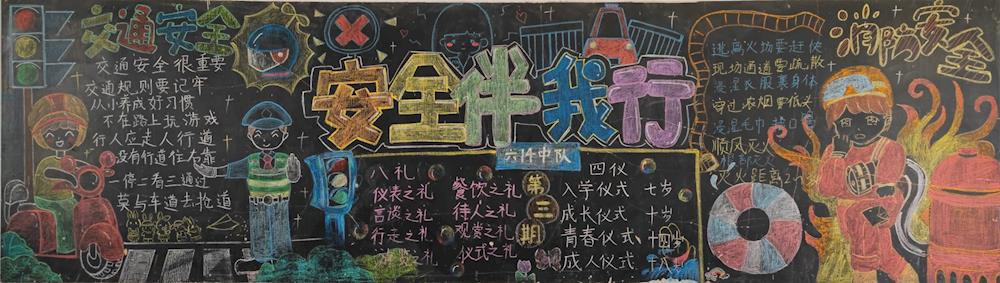 交通安全
交通安全很重要
交通规则要记牢
从小养成好习惯
不在路上玩游戏
行人应走人行道
没有行道往右靠
一停二看三通过
莫与车道去抢道
安全伴我行
六14中队
第三期
八礼
仪表之礼
餐饮之礼
言谈之礼
待人之礼
行走之礼
观赏之礼
仪式之礼
四仪
入学仪式 七岁
成长仪式 十岁
青春仪式 十四岁
成人仪式 十八岁
消防安全
逃离火场要赶快
现场通道要疏散
浸湿衣服裹身体
穿过浓烟要低头
浸湿毛巾捂口鼻
顺风灭火